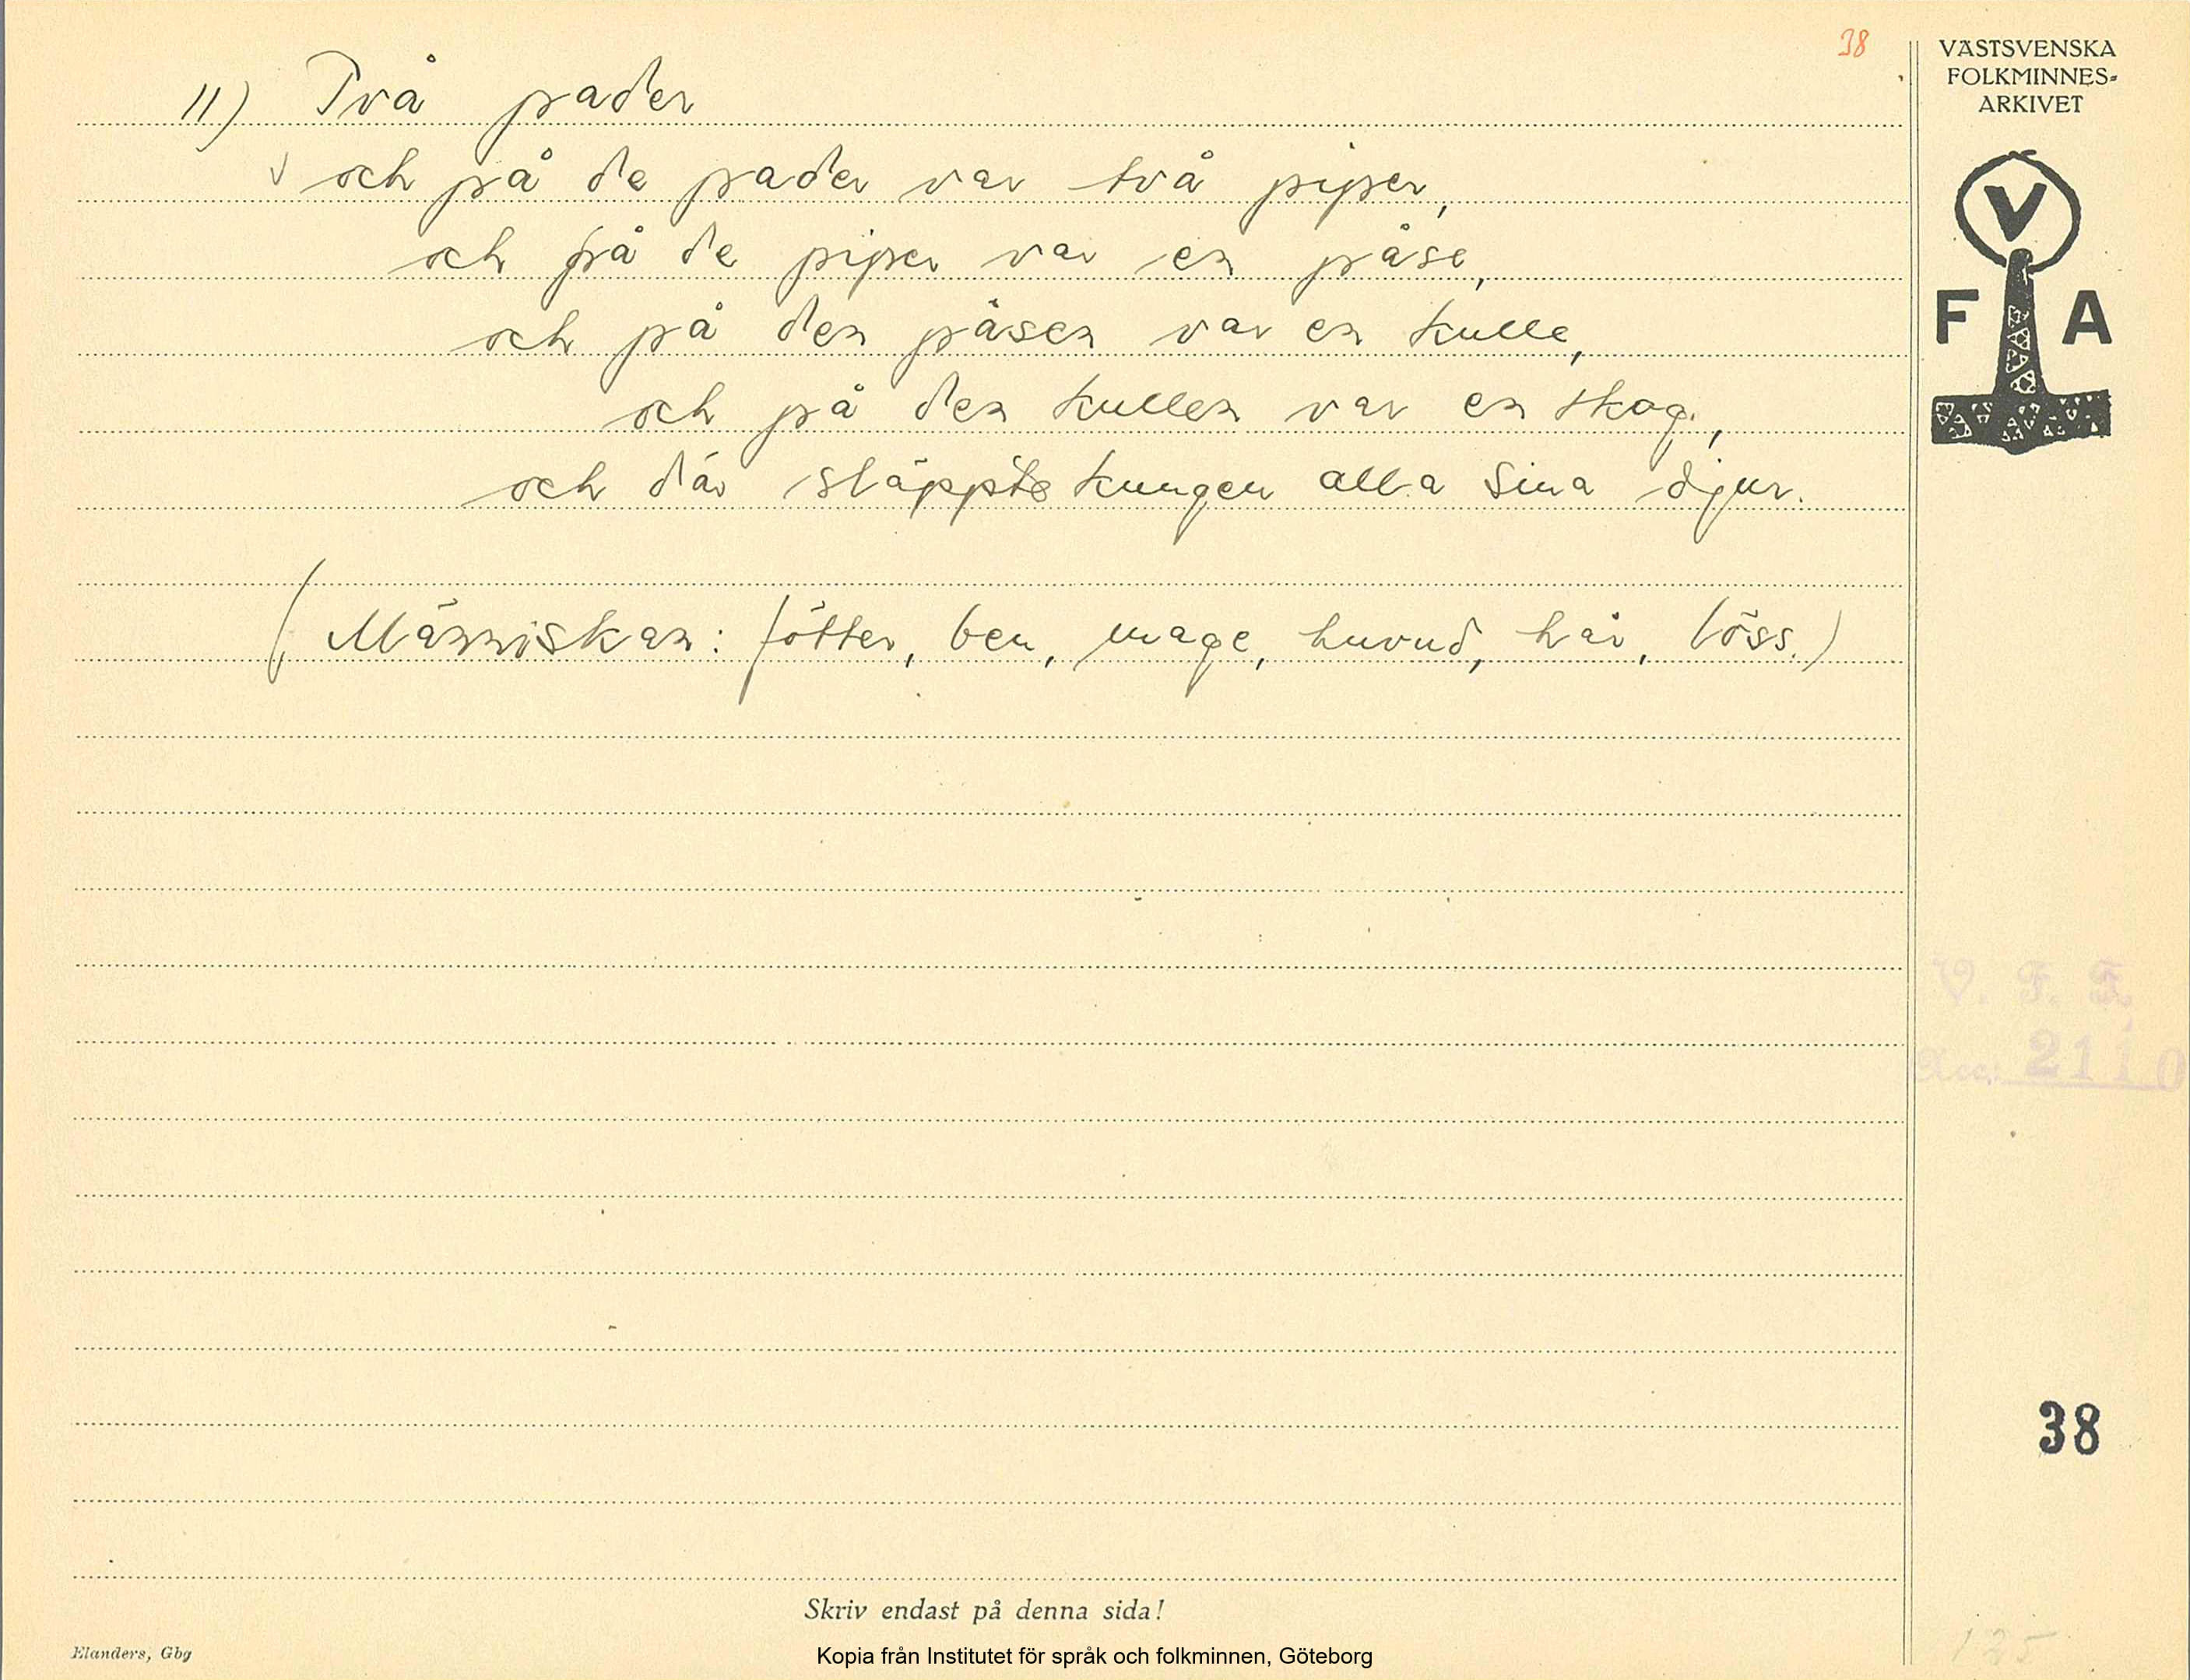 38
VÄSTSVENSKA
FOLKMINNES-
ARKIVET
V
F A
11) Två pader
v och på de pader var två piper,
och på de piper var en påse,
och på den påsen var en kulle,
och på den kullen var en skog,
och där släppte kungen alla sina djur.
(Människan: fötter, ben, mage, huvud, hår, löss.)
V. F. F.
Acc: 2110
38
Skriv endast på denna sida!
Elanders, Gbg
Kopia från Institutet för språk och folkminnen, Göteborg
125